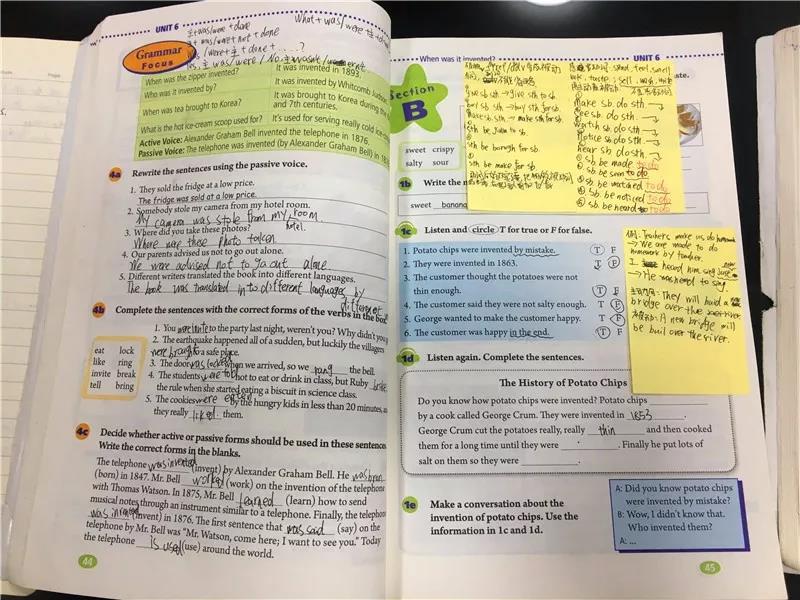 UNIT 6
主+was/were + done
主+ was/were+not + done
Was /were+主 + done + .....?
Yes. 主 was/were / No. 主 wasn't / weren't.
What + was/were 主+
Grammar
Focus
When was the zipper invented? It was invented in 1893.
Who was it invented by? It was invented by Whitcomb
When was tea brought to Korea? It was brought to Korea during the
and 7th centuries.
What is the hot ice-cream scoop used for? It's used for serving really cold ice-
Active Voice: Alexander Graham Bell invented the telephone in 1876.
Passive Voice: The telephone was invented (by Alexander Graham Bell) in 18
4a Rewrite the sentences using the passive voice.
1. They sold the fridge at a low price.
The fridge was sold at a low price.
2. Somebody stole my camera from my hotel room.
My camera was stole from my room.
hotel.
3. Where did you take these photos?
Where were these photo taken
4. Our parents advised us not to go out alone.
We were advised not to go out alone
5. Different writers translated the book into different languages.
The book was translated in to different languages by
different
4b Complete the sentences with the correct forms of the verbs in the box
eat lock
like ring
invite break
tell bring
1. You were invite to the party last night, weren't you? Why didn't you
2. The earthquake happened all of a sudden, but luckily the villagers
were brought to a safe place.
3. The door was locked when we arrived, so we rang the bell.
4. The students were told not to eat or drink in class, but Ruby broke
the rule when she started eating a biscuit in science class.
5. The cookies were eaten by the hungry kids in less than 20 minutes, and
they really liked them.
4c Decide whether active or passive forms should be used in these sentences
Write the correct forms in the blanks.
The telephone was invented (invent) by Alexander Graham Bell. He was born
(born) in 1847. Mr. Bell worked (work) on the invention of the telephone
with Thomas Watson. In 1875, Mr. Bell learned (learn) how to send
musical notes through an instrument similar to a telephone. Finally, the telephone
was invented (invent) in 1876. The first sentence that was said (say) on the
telephone by Mr. Bell was "Mr. Watson, come here; I want to see you." Today
the telephone is used (use) around the world.
44
When was it invented? UNIT 6
Section
B
give sb sth → give sth to sb
buy sb sth → buy sth for sb
make sb sth → make sth for sb
sth be made for sb
make sb. do sth →
see sb. do sth →
watch sb do sth →
notice sb do sth →
hear sb do sth →
sb. be made to do
sb. be seen to do
sb. be watched to do
sb. be noticed to do
sb. be heard to do
sweet crispy
salty sour
1b Write the
sweet banana
1c Listen and circle T for true or F for false.
1. Potato chips were invented by mistake. T F
2. They were invented in 1863. T F
3. The customer thought the potatoes were not
thin enough. T F
4. The customer said they were not salty enough. T F
5. George wanted to make the customer happy. T F
6. The customer was happy in the end. T F
例: Teachers make us do homework
→ We are made to do
homework by teacher.
I heard him sing
→ He was heard to sing.
They will build a
bridge over the river
A new bridge will
be buil over the river.
1d Listen again. Complete the sentences.
The History of Potato Chips
Do you know how potato chips were invented? Potato chips
by a cook called George Crum. They were invented in 1853.
George Crum cut the potatoes really, really thin and then cooked
them for a long time until they were . Finally he put lots of
salt on them so they were .
1e Make a conversation about the
invention of potato chips. Use the
information in 1c and 1d.
A: Did you know potato chips
were invented by mistake?
B: Wow, I didn't know that.
Who invented them?
A: ...
45